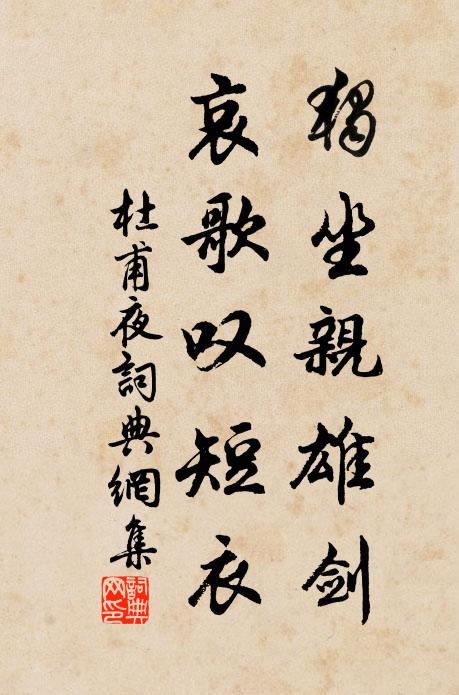 獨坐親雄剑
哀歌叹短衣
杜甫夜詞典網集
詞典网印